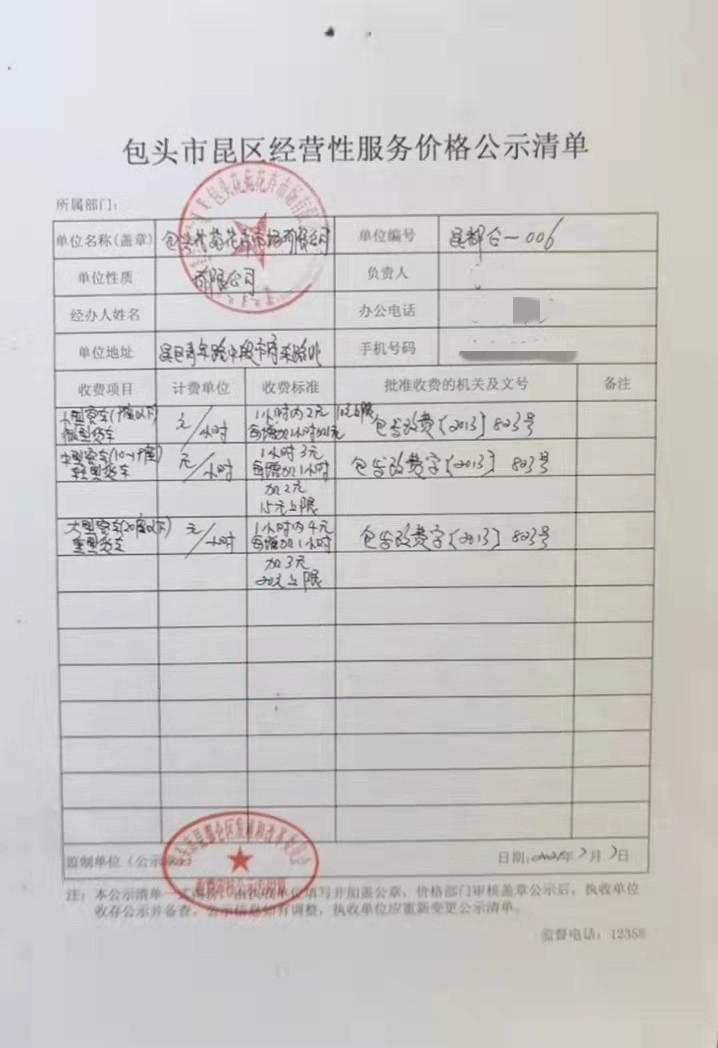 包头市昆区经营性服务价格公示清单
所属部门：
单位名称(盖章) 包头花苑花卉市场有限公司 单位编号 昆都仑-006
单位性质 有限公司 负责人
经办人姓名 办公电话
单位地址 昆区青年路中段市府东路北 手机号码
收费项目 计费单位 收费标准 批准收费的机关及文号 备注
小型客车(9座以下) 元/小时 1小时内2元 10元上限 包发改费(2013)823号
微型货车 每增加1小时加1元
中型客车(10-19座) 元/小时 1小时3元 包发改费字(2013)823号
轻型货车 每增加1小时
加2元
15元上限
大型客车 元/小时 1小时内4元 包发改费字(2013)823号
重型货车 每增加1小时
加3元
20元上限
监制单位（公示 日期： 年 月 日
注：本公示清单一式 由执收单位填写并加盖公章，价格部门审核盖章公示后，执收单位
收存公示并备查。公示信息如有调整，执收单位应重新变更公示清单。
监督电话：12358